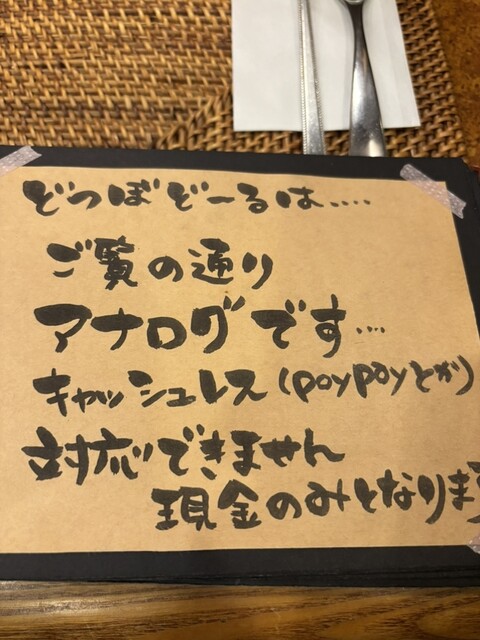 どつぼどーるは....
ご覧の通り
アナログです...
キャッシュレス(paypayとか)
対応できません
現金のみとなります